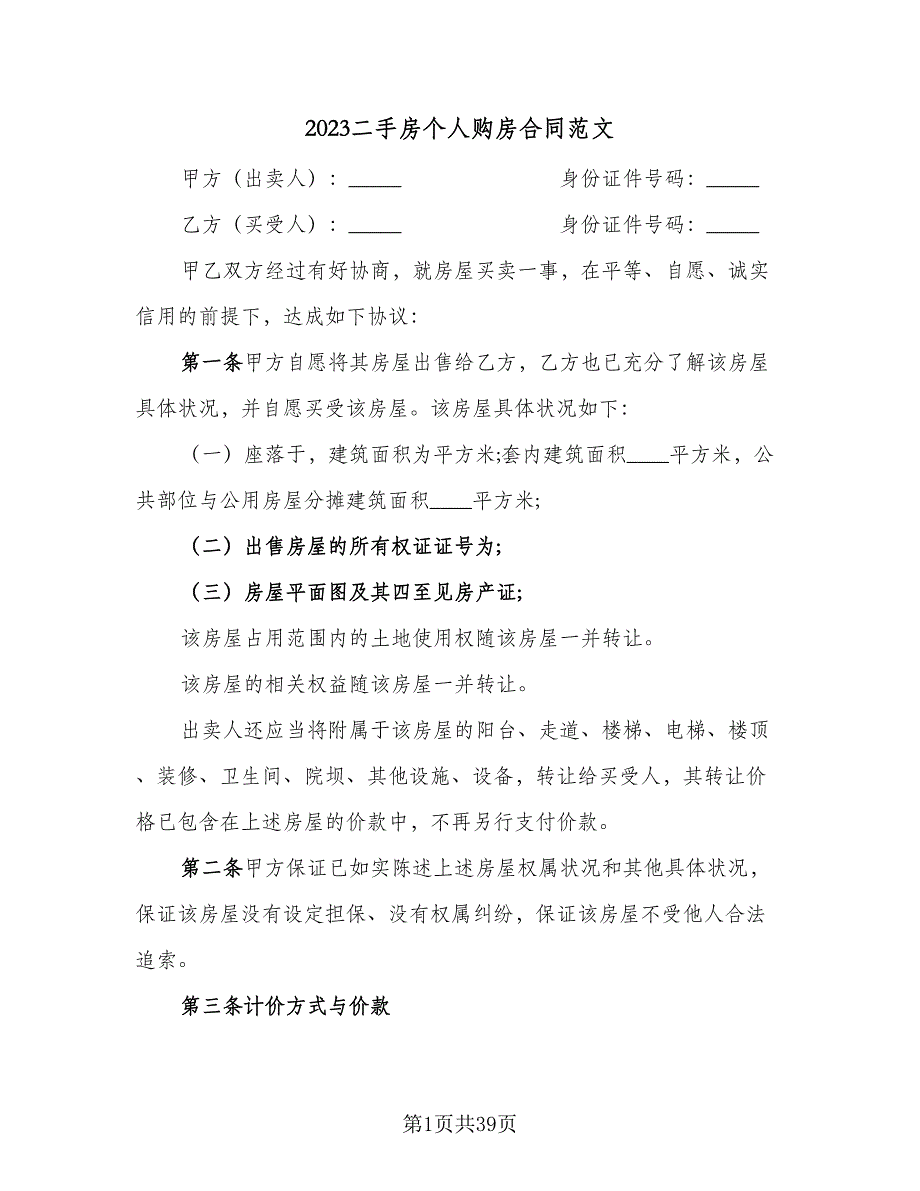 2023二手房个人购房合同范文
甲方（出卖人）：_____ 身份证件号码：_____
乙方（买受人）：_____ 身份证件号码：_____
甲乙双方经过有好协商，就房屋买卖一事，在平等、自愿、诚实
信用的前提下，达成如下协议：
第一条甲方自愿将其房屋出售给乙方，乙方也已充分了解该房屋
具体状况，并自愿买受该房屋。该房屋具体状况如下：
（一）座落于，建筑面积为平方米;套内建筑面积____平方米，公
共部位与公用房屋分摊建筑面积____平方米;
（二）出售房屋的所有权证证号为;
（三）房屋平面图及其四至见房产证;
该房屋占用范围内的土地使用权随该房屋一并转让。
该房屋的相关权益随该房屋一并转让。
出卖人还应当将附属于该房屋的阳台、走道、楼梯、电梯、楼顶
、装修、卫生间、院坝、其他设施、设备，转让给买受人，其转让价
格已包含在上述房屋的价款中，不再另行支付价款。
第二条甲方保证已如实陈述上述房屋权属状况和其他具体状况，
保证该房屋没有设定担保、没有权属纠纷，保证该房屋不受他人合法
追索。
第三条计价方式与价款
第1页共39页